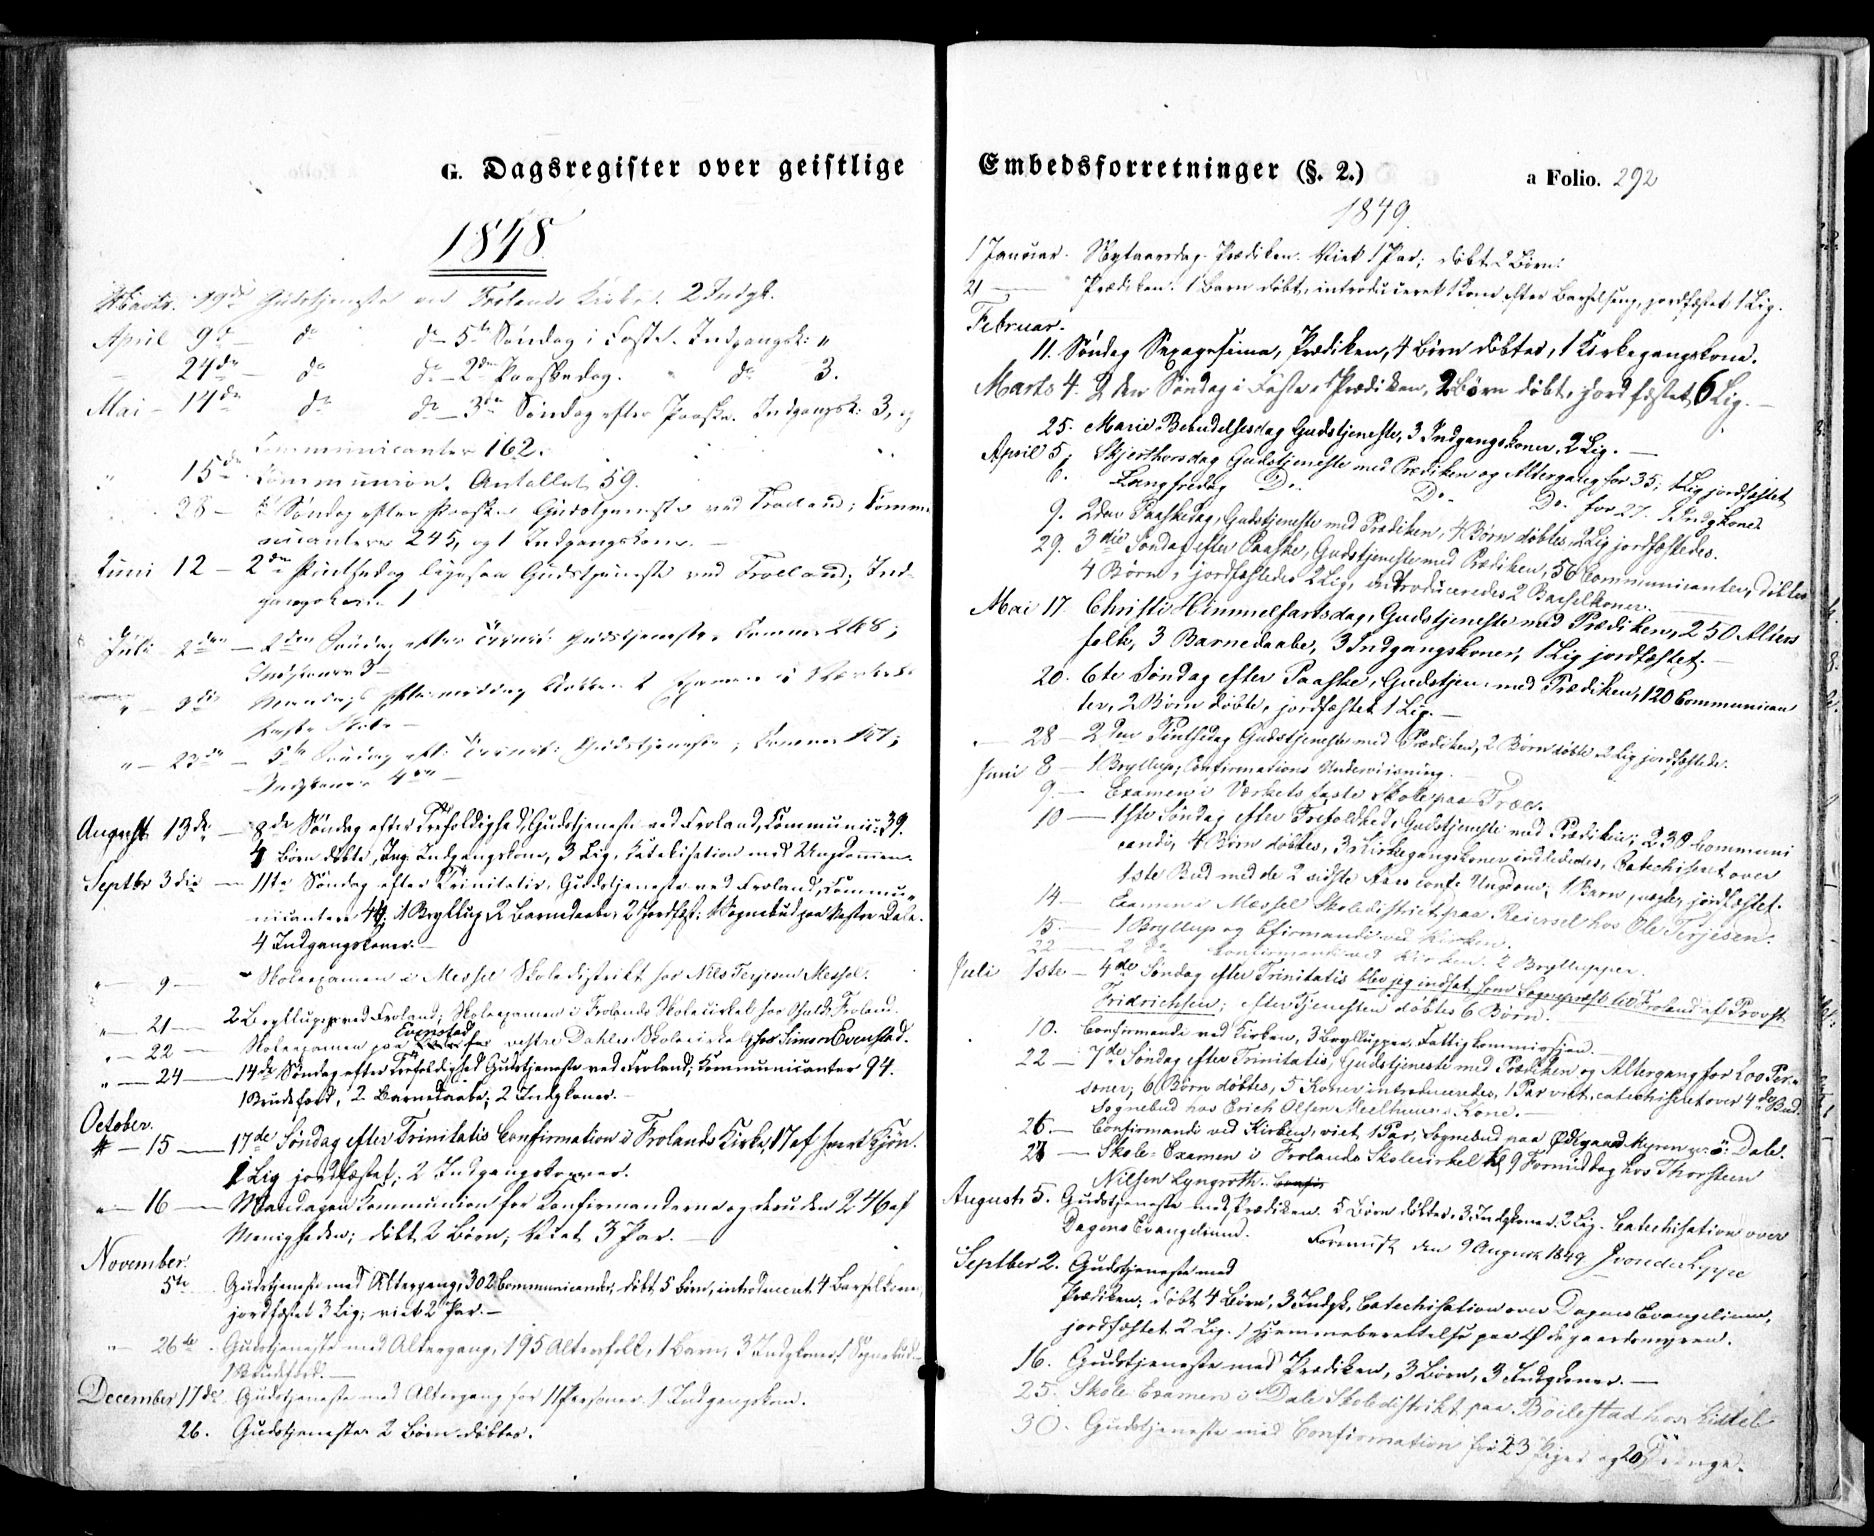 G. Dagsregister over geistlige
1848
Marts 19de Gudstjeneste ved Frolands Kirke. 2 Indgk.
April 9de do do 5te Søndag i Faste. Indgangsk: "
24de do do 2den Paaskedag. " do 3.
Mai 14de do do 3de Søndag efter Paaske. Indgangsk: 3, og
Communicanter 162.
" 15de Communion. Antallet 59.
28 Søndag efter Paaske Gudstjeneste ved Froland; Commu
nicantere 245, og 1 Indgangskone.
Juni 12 2den Pintsedag ligesaa Gudstjeneste ved Froland; Ind-
gangskone 1
Juli 2den 2den Søndag efter Trinit: Gudstjeneste. Commun 248;
Indgkoner
" 3die Mandag Eftermiddag Klokken 2 Examen i Værkets
faste Skole
" 23de 5te Søndag eft: Trinit: Gudstjeneste; Commun 127;
Indgkoner 4re
August 13de 8de Søndag efter Trefoldighed, Gudstjeneste ved Froland, Communic: 39.
4 Børn døbte, Ing. Indgangskone, 3 Lig, Katekisation med Ungdommen.
Septbr 3die 11te Søndag efter Trinitatis, Gudstjeneste ved Froland, Commu-
nicantere 44; 1 Bryllup, 2 Barnedaabe, 2 Jordfæst: 1 Sognebud paa Vestre Dale.
4 Indgangskoner.
" 9 Skoleexamen i Messel Skoledistrikt hos Nils Terjesen Messel.
" 21 2 Bryllupper ved Froland; Skoleexamen i Frolands Skolecirkel hos Froland.
Evenstad
" 22 Skoleexamen paa for vestre Dahles Skolecirkel hos Simon Evenstad.
" 24 14de Søndag efter Trefoldighed Gudstjeneste ved Froland; Communicanter 94.
1 Brudefærd, 2 Barnedaabe; 2 Indgkoner.
October.
15 17de Søndag efter Trinitatis Confirmation i Frolands Kirke, 17 af hvert Kjøn.
1 Lig jordfæstet; 2 Indgangskoner.
" 16 Mandagen Communion for Konfirmanderne og desuden 246 af
Menigheden; døbt 2 Børn; Viet 3 Par.
November.
5te Gudstjeneste med Altergang, 302 Communicander, døbt 5 Børn, introduceret 4 Barselkoner,
jordfæstet 3 Lig, viet 2 Par.
" 26de Gudstjeneste med Altergang, 195 Altersfolk, 1 Barn, 3 Indgkoner, 1 Sognebud
1 Brudefærd.
December 17de Gudstjeneste med Altergang for 11 Personer. 1 Indgangskone.
26. Gudstjeneste 2 Børn døbtes.
Embedsforretninger (§. 2.)
a Folio. 292
1849.
1 Januar. Nytaarsdag. Prædiken. Viet 1 Par; døbt 2 Børn.
21 Prædiken. 1 Barn døbt, introduceret 1 Kone efter Barselseng, jordfæstet 1 Lig.
Februar.
11. Søndag Sexagesima, Prædiken, 4 Børn døbtes, 1 Kirkegangskone.
Marts 4. 2den Søndag i Faste. Prædiken, 2 Børn døbt, jordfæstet 6 Lig.
25. Mariæ Bebudelsesdag Gudstjeneste, 3 Indgangskoner, 2 Lig.
April 5. Skjærthorsdag Gudstjeneste med Prædiken og Altergang for 35; 1 Lig jordfæstet
6. Langfredag Do. Do. Do. for 27. 1 Indgkone
9. 2den Paaskedag, Gudstjeneste med Prædiken, 4 Børn døbtes, 2 Lig jordfæstedes.
29. 3die Søndag efter Paaske, Gudstjeneste med Prædiken, 56 Communicanter, døbtes
4 Børn, jordfæstedes 2 Lig, introduceredes 2 Barselkoner.
Mai 17. Christi Himmelfartsdag, Gudstjeneste med Prædiken, 250 Alters
folk, 3 Barnedaabe, 3 Indgangskoner, 1 Lig jordfæstet.
20. 6te Søndag efter Paaske, Gudstjen. med Prædiken, 120 Communican
ter, 2 Børn døbte, jordfæstet 1 Lig.
28 2den Pintsedag Gudstjeneste med Prædiken, 2 Børn døbte, 2 Lig jordfæstede.
Juni 8 1 Bryllup, Confirmations Underviisning.
9. Examen i Værkets faste Skole paa Træe.
10 1ste Søndag efter Trefoldhed, Gudstjeneste med Prædiken; 230 Communi
candi, 4 Børn døbtes, 3 Kirkegangskoner indlededes, Catechiseret over
1ste Bud med de 2 sidste Aars conf. Ungdom; 1 Barn jordfæstet.
14 Examen i Messel Skoledistrict paa Reiersel hos Ole Terjesen.
15. 1 Bryllup og Cfirmander ved Kirken.
22 Confirmander ved Kirken. 2 Bryllupper.
Juli 1ste 4de Søndag efter Trinitatis blev jeg indsat som Sognepræst til Froland af Provst
Fridrichsen; efter Tjenesten døbtes 6 Børn.
10. Confirmande ved Kirken, 3 Bryllupper, Fattigkommission.
22 7de Søndag efter Trinitatis, Gudstjeneste med Prædiken og Altergang for 200 Per-
soner, 6 Børn døbtes, 5 Koner introduceredes, 1 Par viet, catechiseret over 4de Bud.
Sognebud hos Erich Olsen Kone.
26. Confirmande ved Kirken, viet 1 Par, Sognebud paa Ødegaards Myren ö: Dale.
27 Skole-Examen i Frolands Skolecirkel Kl 9 Formiddag hos Thorsteen
Nilsen Lyngroth.
August 5. Gudstjeneste med Prædiken. 5 Børn døbtes, 3 Indgkoner. 2 Lig. Catechisation over
Dagens Evangelium.
den 9 August 1849 J von der Lippe
Septber 2. Gudstjeneste med
Prædiken, døbt 4 Børn, 3 Indgk, Catechisation over Dagens Evangelium,
jordfæstet 2 Lig. 1 Hjemmeberettelse paa Ødegaardsmyren.
16. Gudstjeneste med Prædiken, 3 Børn, 3 Indgkoner.
25. Skole-Examen i Dale Skoledistrikt paa Bøilestad hos Kittel
30. Gudstjeneste med Confirmation for 23 Piger og 20 Drenge.